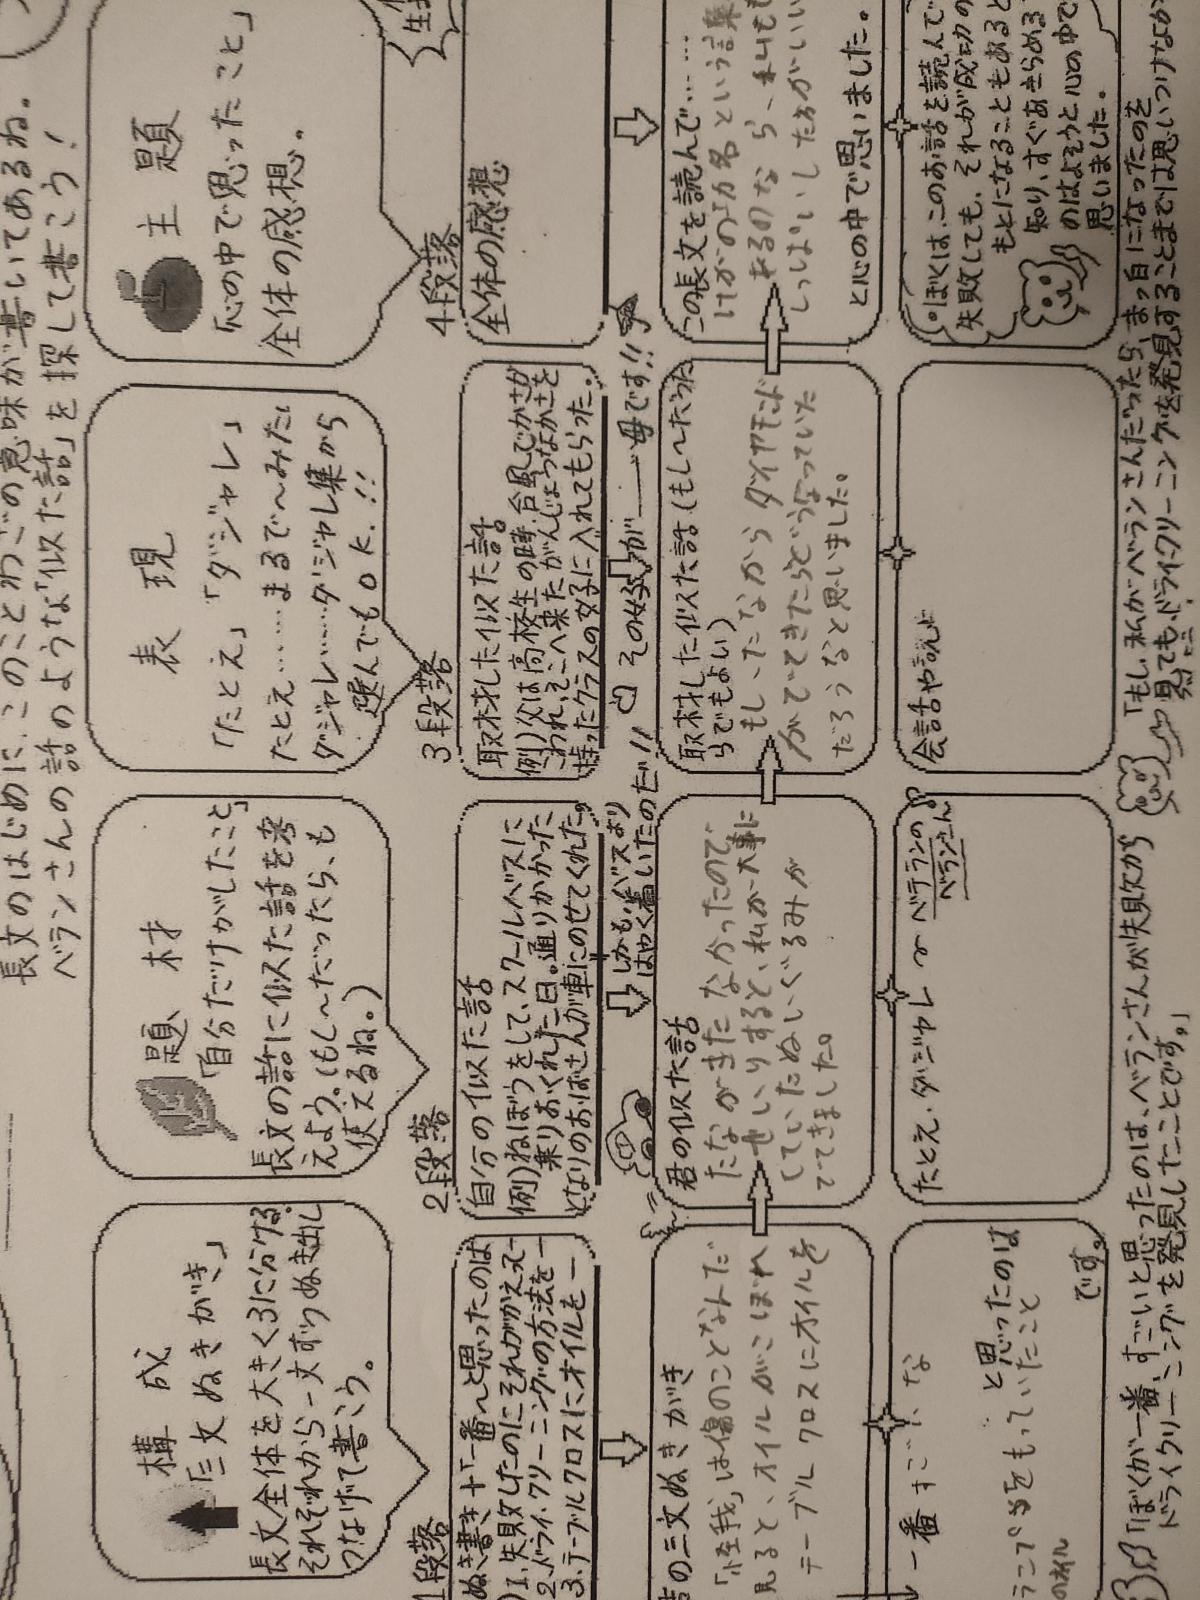 長文のはじめに、このことわざの意味が書いてあるね。
ベランさんの話のような「似た話」を探して書こう!
構成
「三文ぬきがき」
長文全体を大きく3に分ける。
それぞれから一文ずつぬき出し
つなげて書こう。
題材
「自分だけがしたこと」
長文の話に似た話を考
えよう。(もし〜だったら、も
使えるね。)
表現
「たとえ」「ダジャレ」
たとえ……まるで〜みたい
ダジャレ……ダジャレ集から
選んでもOK.!!
主題
「心の中で思ったこと」
全体の感想。
1段落
ぬき書き+「一番〜と思ったのは
1、失敗したのにそれがかえって
2、ドライ・クリーニングの方法を
3、テーブルクロスにオイルを
2段落
自分の似た話
例)ねぼうをして、スクールバスに
乗りおくれた日。通りかかった
となりのおばさんが車にのせてくれた。
しかも、バスより
はやく着いたのだ!!
3段落
取材した似た話
例)父は高校生の時、台風でかさが
こわれ、そこへ来たがんじょうなかさを
持ったクラスの女子に入れてもらった。
その女子が――母です!!
4段落
全体の感想
の三文ぬきがき
「怪我」は傷のことなんだ
見ると、オイルがこぼれ
テーブルクロスにオイルを
君の似た話
たながまたなかったので、
せいりすると、私が大事に
していたぬいぐるみが
でてきました。
取材した似た話(もし〜だった
らでもよい)
もし、たなからダイヤモンド
がでてきたらどうなっていた
だろうなと思いました。
この長文を読んで……
けがの功名という言葉
あるのなら、私も
しっぱいしたほうがいい
と心の中で思いました。
一番すごいな
と思ったのは
をもっていたこと
です。
たとえ・ダジャレ 〜 ベテランの
ベランさん?
会話や説明
ぼくは、このお話を読んで
失敗しても、それが成功の
もとになることもあると
知り、すぐあきらめる
のはよそうと心の中で
思いました。
「ぼくが一番、すごいと思ったのは、ベランさんが失敗から
ドライクリーニングを発見したことです。」
「もし、私がベランさんだったら、まっ白になったのを
見ても、ドライクリーニングを発見することまでは思いつけなか